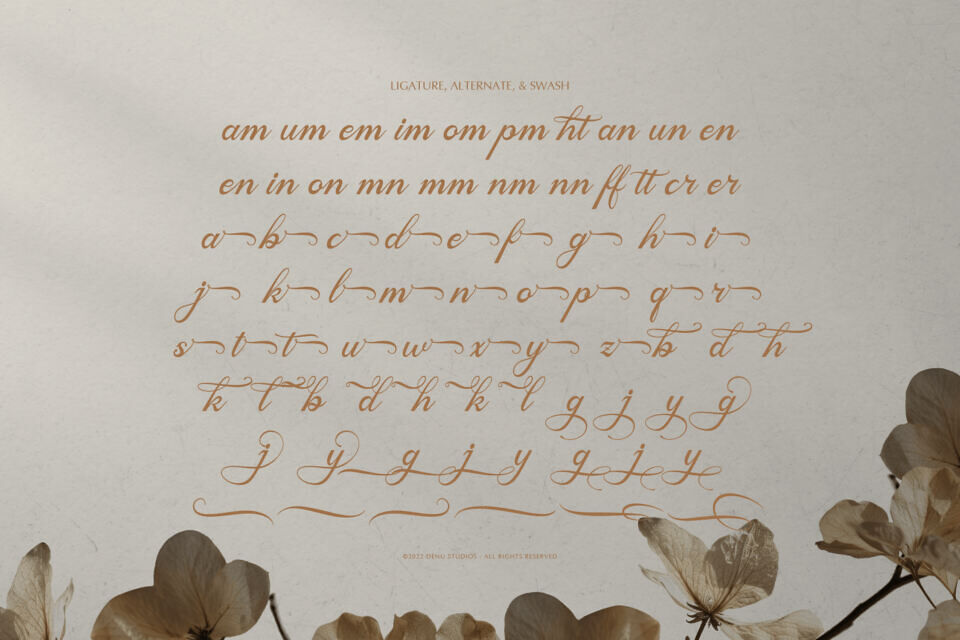 LIGATURE, ALTERNATE, & SWASH
am um em im om pm ht an un en
en in on mn mm nm nn ff tt cr er
a b c d e f g h i
j k l m n o p q r
s t t u w x y z b d h
k l b d h k l g j y g
j y g j y g j y
©2022 DENU STUDIOS - ALL RIGHTS RESERVED